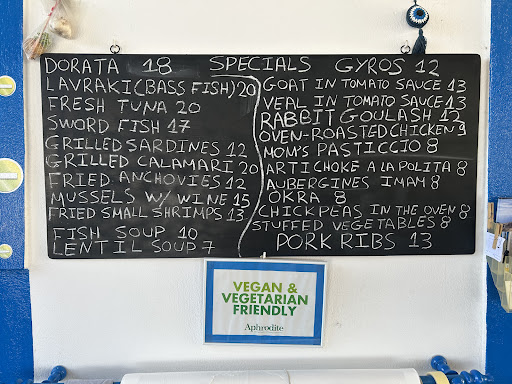 SPECIALS
DORATA 18
LAVRAKI (BASS FISH) 20
FRESH TUNA 20
SWORD FISH 17
GRILLED SARDINES 12
GRILLED CALAMARI 20
FRIED ANCHOVIES 12
MUSSELS W/ WINE 15
FRIED SMALL SHRIMPS 13
FISH SOUP 10
LENTIL SOUP 7
GYROS 12
GOAT IN TOMATO SAUCE 13
VEAL IN TOMATO SAUCE 13
RABBIT GOULASH 12
OVEN-ROASTED CHICKEN 9
MOM'S PASTICCIO 8
ARTICHOKE A LA POLITA 8
AUBERGINES IMAM 8
OKRA 8
CHICKPEAS IN THE OVEN 8
STUFFED VEGETABLES 8
PORK RIBS 13
VEGAN &
VEGETARIAN
FRIENDLY
Aphrodite